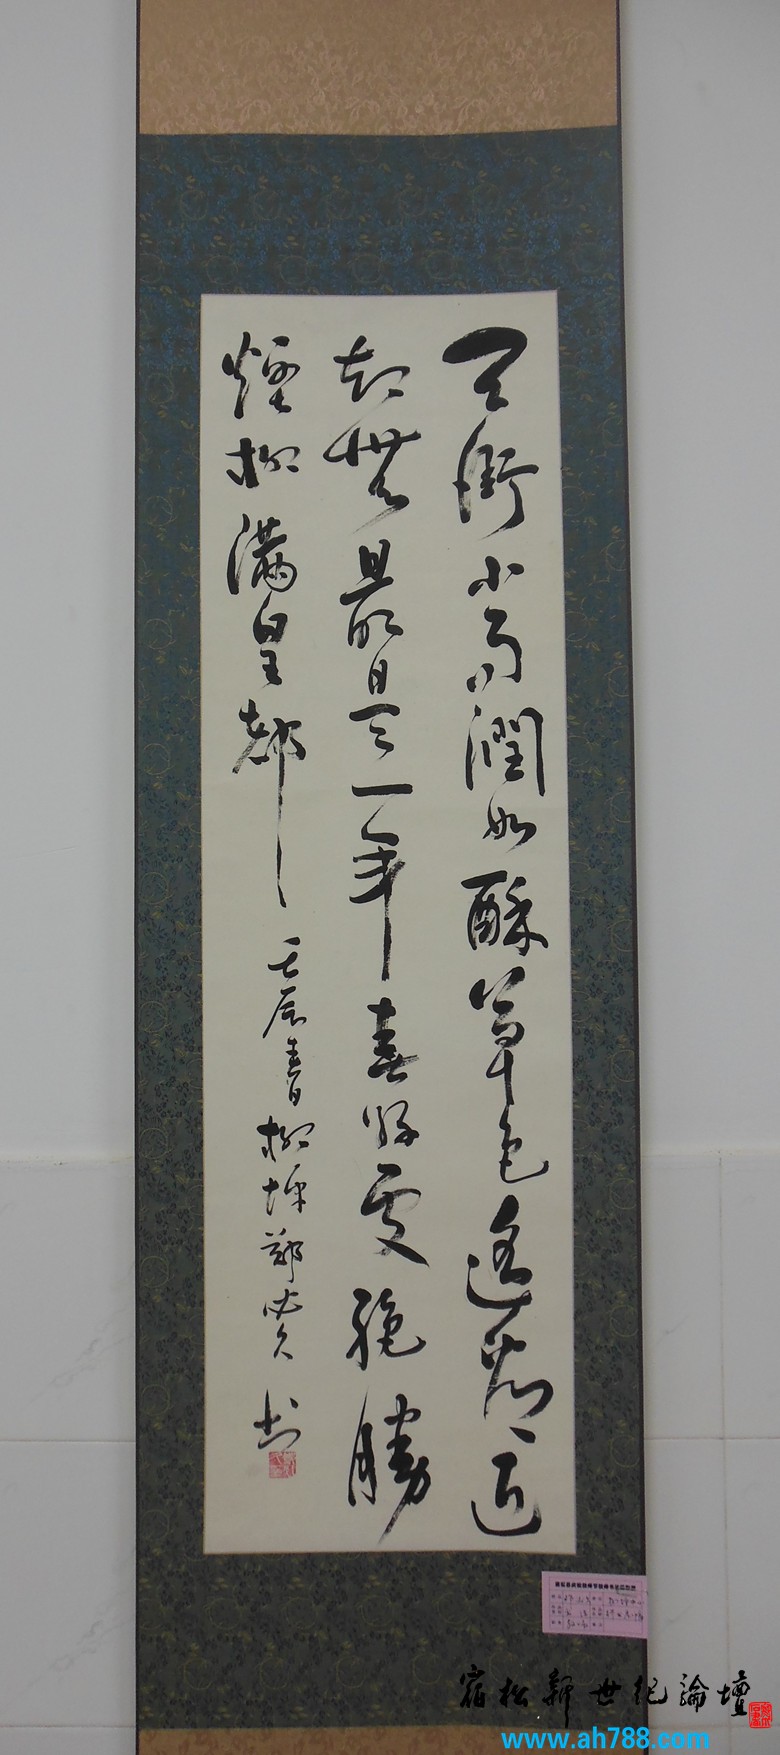 天街小雨潤如酥草色遙看近
却無最是一年春好處絕勝
煙柳滿皇都
壬辰春柳坪鄭书
宿松新世紀論壇
www.ah788.com